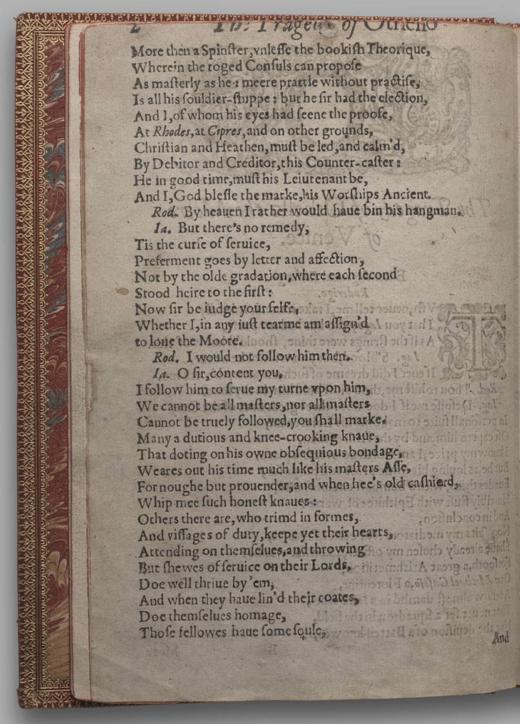 2 The Tragedy of Othello
More then a Spinster, vnlesse the bookish Theorique,
Wherein the toged Consuls can propose
As masterly as he: meere prattle without practise,
Is all his souldier-shippe: but he sir had the election,
And I, of whom his eyes had seene the proofe,
At Rhodes, at Cipres, and on other grounds,
Christian and Heathen, must be led, and calm'd,
By Debitor and Creditor, this Counter-caster:
He in good time, must his Leiutenant be,
And I, God blesse the marke, his Worships Ancient.
Rod. By heauen I rather would haue bin his hangman.
Ia. But there's no remedy,
Tis the curse of seruice,
Preferment goes by letter and affection,
Not by the olde gradation, where each second
Stood heire to the first:
Now sir be iudge your selfe,
Whether I, in any iust tearme am assign'd
to loue the Moore.
Rod. I would not follow him then.
Ia. O sir, content you,
I follow him to serue my turne vpon him,
We cannot be all masters, nor all masters
Cannot be truely followed, you shall marke.
Many a dutious and knee-crooking knaue,
That doting on his owne obsequious bondage,
Weares out his time much like his masters Asse,
For noughe but prouender, and when hee's old cashierd,
Whip mee such honest knaues:
Others there are, who trimd in formes,
And vissages of duty, keepe yet their hearts,
Attending on themselues, and throwing
But shewes of seruice on their Lords,
Doe well thriue by 'em,
And when they haue lin'd their coates,
Doe themselues homage,
Those fellowes haue some soule,
And